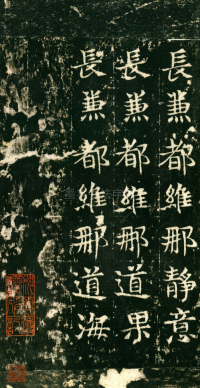 長兼都維那靜意
長兼都維那道果
長兼都維那道海